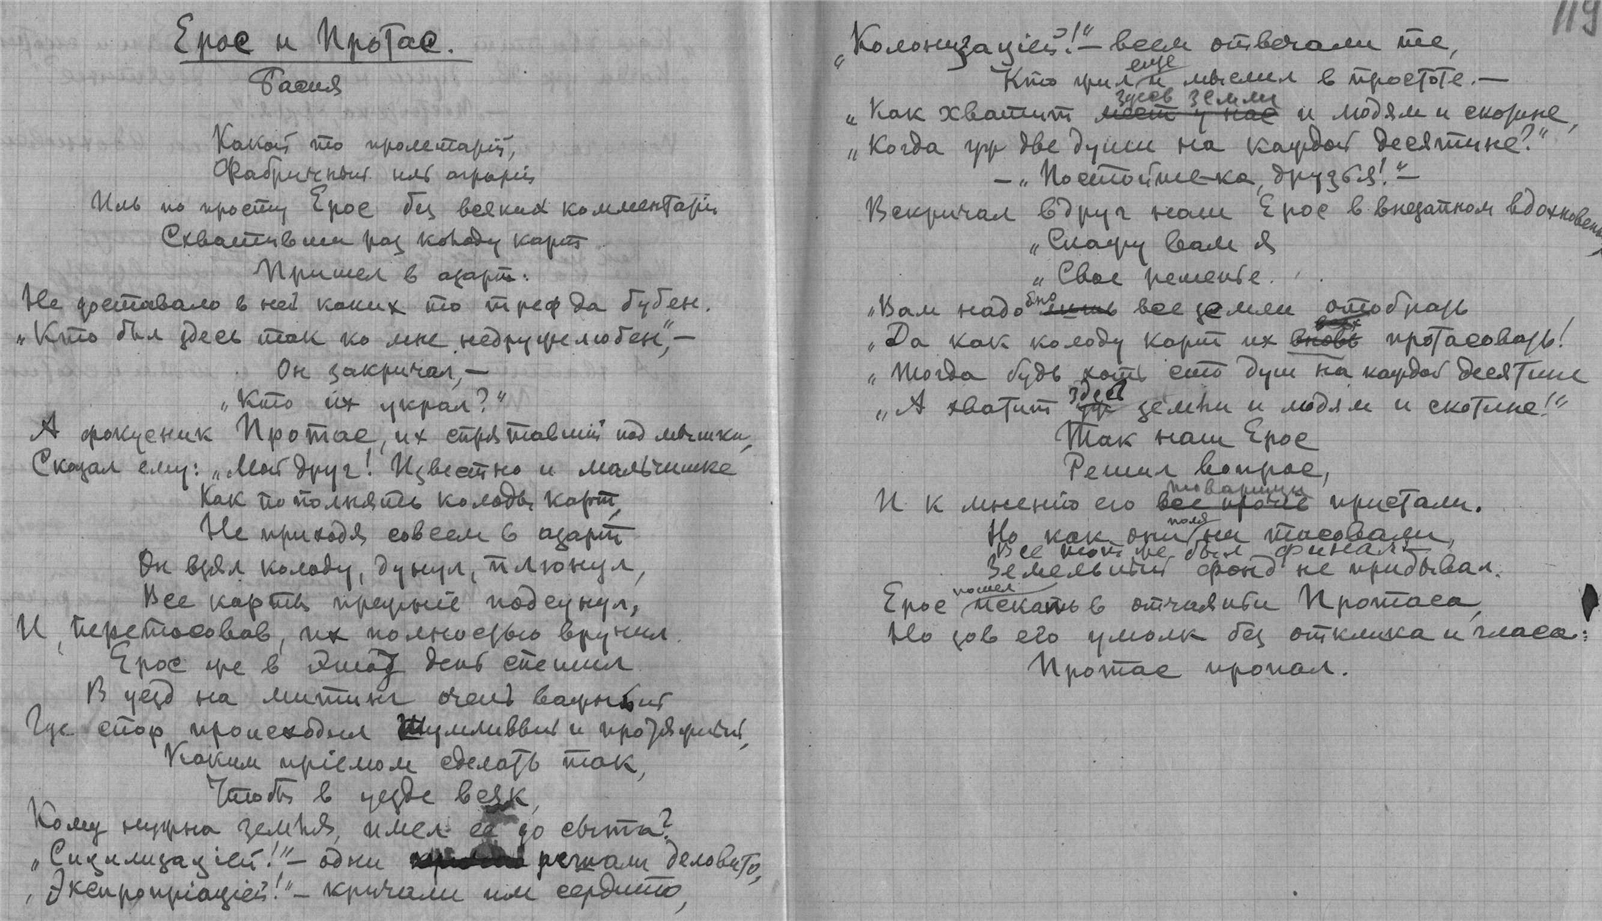 Ерос и Протас.
Басня
Какой то пролетарій,
Фабричный иль аграрій
Иль по просту Ерос без всяких комментарій
Схвативши раз колоду карт
Пришел в азарт.
Не доставало в ней каких то треф да бубен.
„Кто был здесь так ко мне недружелюбен",—
Он закричал,—
„Кто их украл?"
А фокусник Протас, их спрятавший под мышки,
Сказал ему: „Мой друг! Известно и мальчишке
Как пополнять колоды карт,
Не приходя совсем в азарт
Он взял колоду, дунул, плюнул,
Все карты прежние подсунул,
И, перетасовав, их полностью вручил.
Ерос же в этот день спешил
В уезд на митинг очень важный
Где спор происходил шумливый и протяжный,
Каким пріемом сделать так,
Чтобы в уезде всяк,
Кому нужна земля, имел ее до сыта?
„Сицилизацiей!"— одни решали деловито,
„Экспропріаціей!"— кричали им сердито,
119
„Колонизаціей!"— всем отвечали те,
Кто жил еще и мыслил в простоте.—
„Как хватит здесь земли и людям и скотине,
„Когда уж две души на каждой десятине?"
—„Постойте-ка, друзья!"—
Вскричал вдруг наш Ерос в внезапном вдохновеньи,
„Скажу вам я
„Свое решенье.
„Вам надобно все земли отобрать
„Да как колоду карт их всех протасовать!
„Тогда будь хоть сто душ на каждой десятине
„А хватит здесь земли и людям и скотине!"
Так наш Ерос
Решил вопрос,
И к мнению его товарищи пристали.
Но как поля ни тасовали,
Все тот же был финал:
Земельный фонд не прибывал.
Ерос пошел искать в отчаяньи Протаса,
Но зов его умолк без отклика и гласа:
Протас пропал.